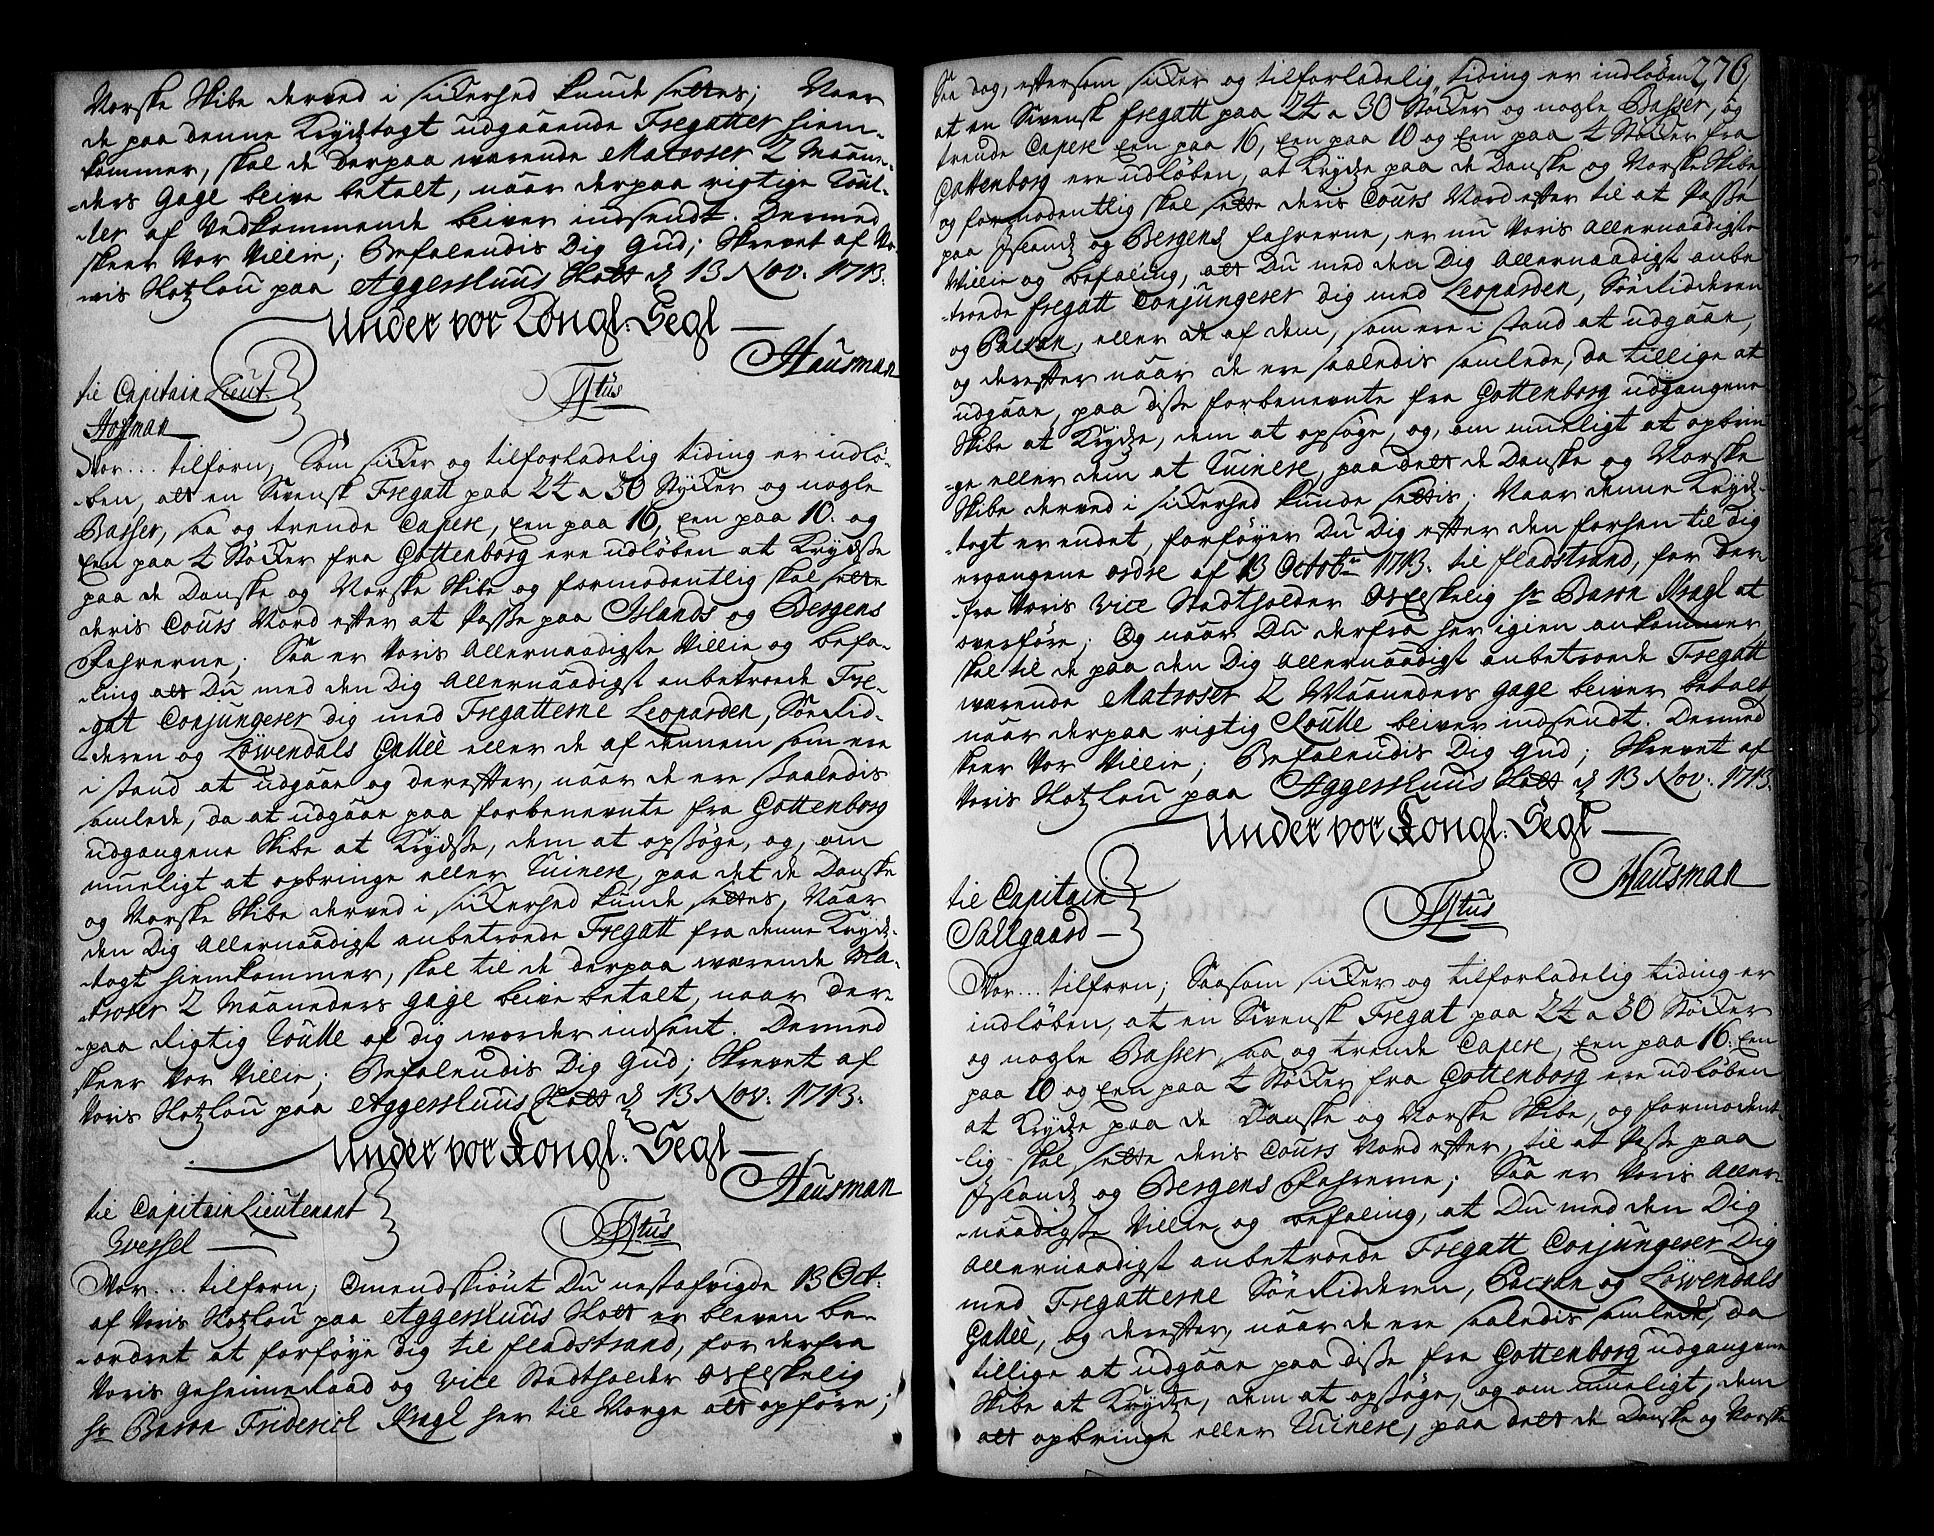 Norske Skibe derved i sickerhed kunde settes; Naar
de paa denne Krydstogt udgaaende Fregatter hiem-
kommer, skal de derpaa wærende Matroser 2 Maane-
-ders gage blive betalt, naar derpaa rigtige Roul-
-ler af Vedkommende bliver indsendt. Dermed
skeer Vor Villie; Befalendis Dig Gud; Skrevet af Vo-
ris Slotzlou paa Aggershuus Slott d 13 Nov: 1713.
Under vor Kongl: Segl
Hausman
til Capitain Lieut.
Hoffman
Ftus
Vor... tilforn; Som sicker og tilforladelig tiding er indlø-
ben, att en Svensk Fregatt paa 24 a 30 Stycker og nogle
Basser, saa og trende Capere, Een paa 16, Een paa 10. og
Een paa 4 Støcker fra Gottenborg ere udløben at Krydsse
paa de Danske og Norske Skibe og formodentlig skal sette
deris Cours Nord efter at Passe paa Islands og Bergens
Fahrerne; Saa er Voris Allernaadigste Villie og befa-
-ling att Du med den Dig Allernaadigst anbetroede Fre-
-gat Conjungerer dig med Fregatterne Leoparden, Søe Rid-
-deren og Løwendals Gallèe eller de af dennem som ere
i stand at udgaae og derefter, naar de ere saaledis
samlede, da at udgaae paa forbenevnte fra Gottenborg
udgangene Skibe at Krydsse, dem at opsøge, og, om
mueligt at opbringe eller Ruinere, paa det de Danske
og Norske Skibe derved i sickerhed kunde settes, Naar
den Dig Allernaadigst anbetroede Fregatt fra denne Kryds-
-togt hiemkommer, skal til de derpaa wærende Ma-
-troser 2 Maaneders gage blive betalt, naar der-
-paa Rigtig Roulle af dig worder indsent. Dermed
skeer Vor Villie; Befalendis Dig Gud; Skrevet af
Voris Slotzlou paa Aggershuus Slott d 13 Nov: 1713.
Under vor Kongl: Segl
Hausman
til Capitain Lieutenant
Wessel
Ftus
Vor... tilforn; Omendskiøut Du nestafvigde 13 Oct.
af Voris Slotzlou paa Aggershuus Slott er bleven be-
-ordret at forføye dig til fladstrand, for derfra
Voris Geheimeraad og Vice Stadtholder Os Elskelig
Hr Baron Friderich Kragl her til Norge att opføre;
276
Saa dog, eftersom sicker og tilforladelig tiding er indløben
at en Svensk fregatt paa 24 a 30 Støcker og nogle Basser, og
trende Capere Een paa 16, Een paa 10 og Een paa 4 Støcker fra
Gottenborg ere udløben, at Krydze paa de Danske og Norske Skibe,
og formodentlig skal sette deris Cours Nord efter til at Passe
paa Islandz og Bergens Fahrerne, er nu Voris Allernaadigste
Villie og befaling, att Du med den Dig Allernaadigst anbe
-troede fregatt Conjungerer dig med Leoparden, Søe Ridderen
og Packan, eller de af dem, som ere i stand at udgaae,
og derefter naar de ere saaledis samlede, da tillige at
udgaae, paa disse forbenevnte fra Gottenborg udgangene
Skibe at Krydze, dem at opsøge, og, om mueligt at opbrin
-ge eller dem at Ruinere, paa dett de Danske og Norske
Skibe derved i sickerhed kunde settis. Naar denne Kryds-
-togt er endet, forføyer Du Dig efter den forhen til dig
ergangene ordre af 13 Octobr 1713. til fladstrand, for der-
-fra Voris Vice Stadtholder Os Elskelig Hr Baron Kragl at
overføre; Og naar Du derfra her igien ankommer
skal til de paa den Dig Allernaadigst anbetroede Fregatt
wærende Matroser 2 Maaneders gage bliver betalt,
naar derpaa rigtig Roulle bliver indsendt. Dermed
skeer Vor Villie; Befalendis Dig Gud; Skrevet af
Voris Slotzlou paa Aggershuus Slott d 13 Nov: 1713.
Under vor Kongl: Segl
Hausman
til Capitain
Sallgaard
Ftus
Vor... tilforn; Saasom sicker og tilforladelig tiding er
indløben, at en Svensk Fregat paa 24 a 30 Støcker
og nogle Basser, saa og trende Capere, Een paa 16. Een
paa 10 og Een paa 4 Støcker fra Gottenborg ere udløben
at Krydze paa de Danske og Norske Skibe, og formodent
lig skal sette deris Cours Nord efter, til at Passe paa
Islandz og Bergens Fahrerne; Saa er Voris Aller-
-naadigste Villie og befaling, at Du med den Dig
Allernaadigst anbetroede Fregatt Conjungerer Dig
med Fregatterne Søe Ridderen, Packan og Løwendals
Gallèe, og derefter, naar de ere saaledis samlede, da
tillige at udgaae paa disse fra Gottenborg udgangene
Skibe at Krydze, dem at opsøge, og om mueligt, dem
att opbringe eller Ruinere, paa dett de Danske og Norske